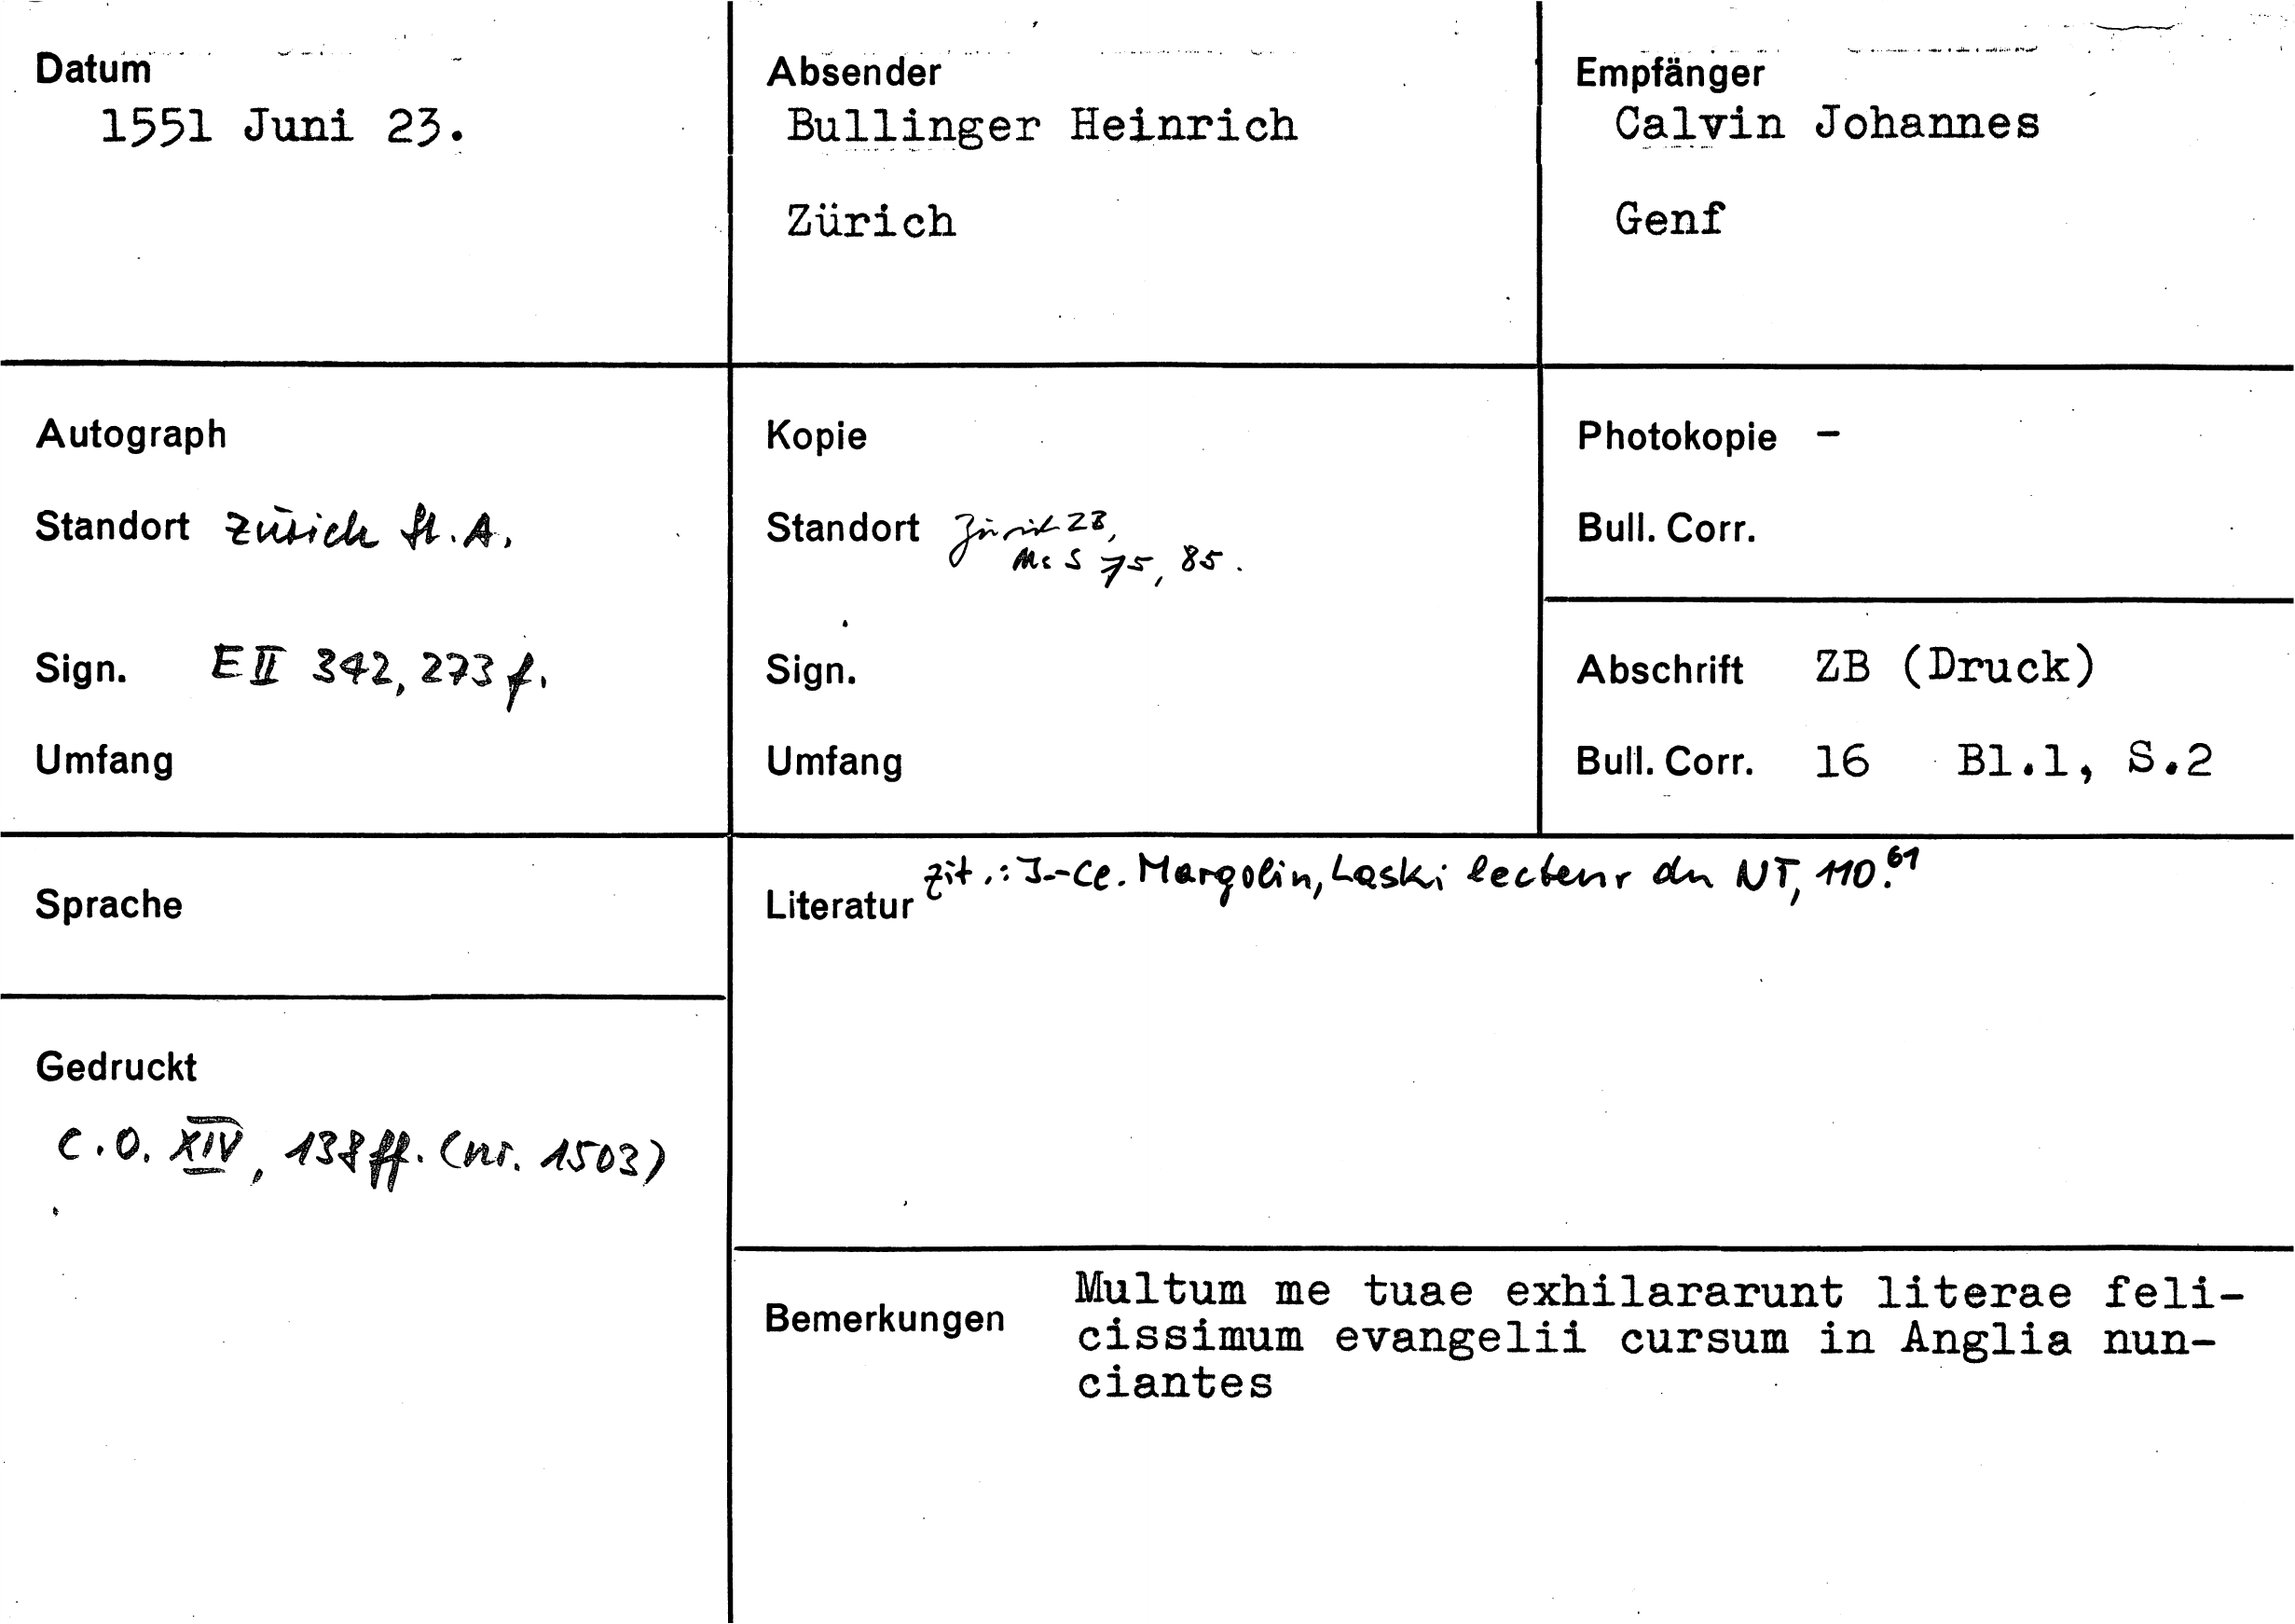 Datum
1551 Juni 23.
Absender
Bullinger Heinrich
Zürich
Empfänger
Calvin Johannes
Genf
Autograph
Standort Zürich St. A.
Sign. E II 342, 273 f.
Umfang
Kopie
Standort Zürich ZB,
Ms S 75, 85.
Sign.
Umfang
Photokopie -
Bull. Corr.
Abschrift ZB (Druck)
Bull. Corr. 16 Bl.1, S.2
Sprache
Gedruckt
C.O. XIV, 138 ff. (nr. 1503)
Literatur zit.: J.-Cl. Margolin, Laski lecteur du NT, 110.61
Bemerkungen Multum me tuae exhilararunt literae feli-
cissimum evangelii cursum in Anglia nun-
ciantes